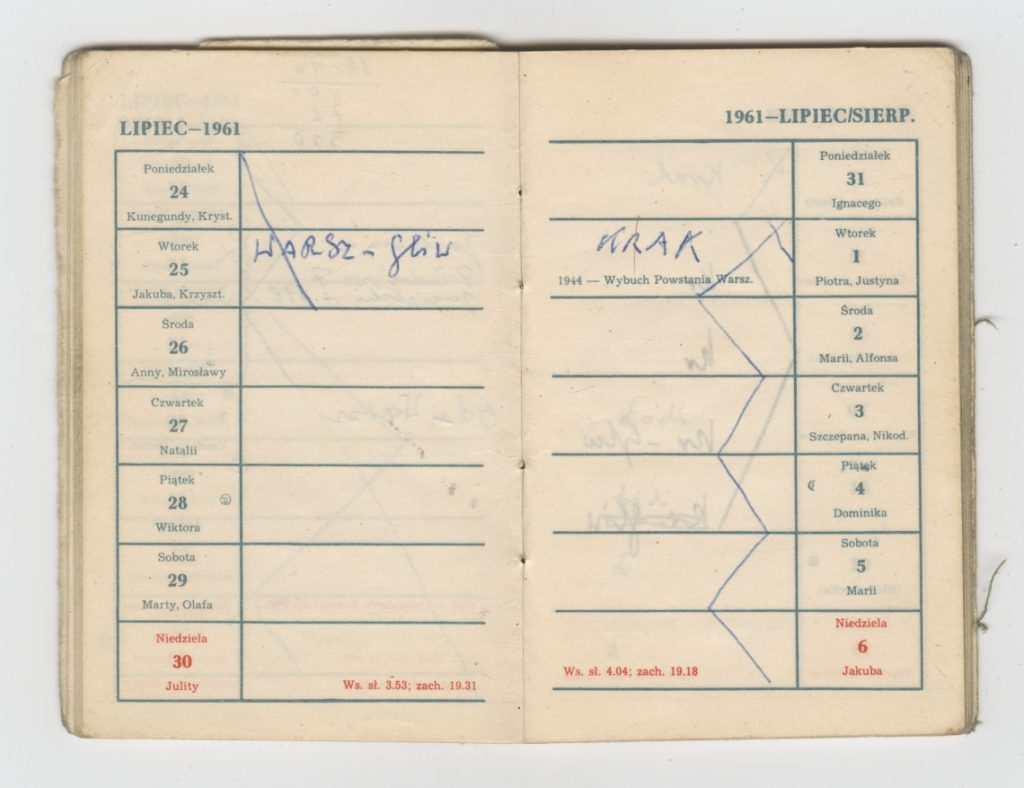 LIPIEC—1961
Poniedziałek
24
Kunegundy, Kryst.
Wtorek
25
Jakuba, Krzyszt.
WARSZ - GLIW
Środa
26
Anny, Mirosławy
Czwartek
27
Natalii
Piątek
28
Wiktora
Sobota
29
Marty, Olafa
Niedziela
30
Julity
Ws. sł. 3.53; zach. 19.31
1961—LIPIEC/SIERP.
Poniedziałek
31
Ignacego
KRAK
1944 — Wybuch Powstania Warsz.
Wtorek
1
Piotra, Justyna
Środa
2
Marii, Alfonsa
Czwartek
3
Szczepana, Nikod.
Piątek
4
Dominika
Sobota
5
Marii
Ws. sł. 4.04; zach. 19.18
Niedziela
6
Jakuba